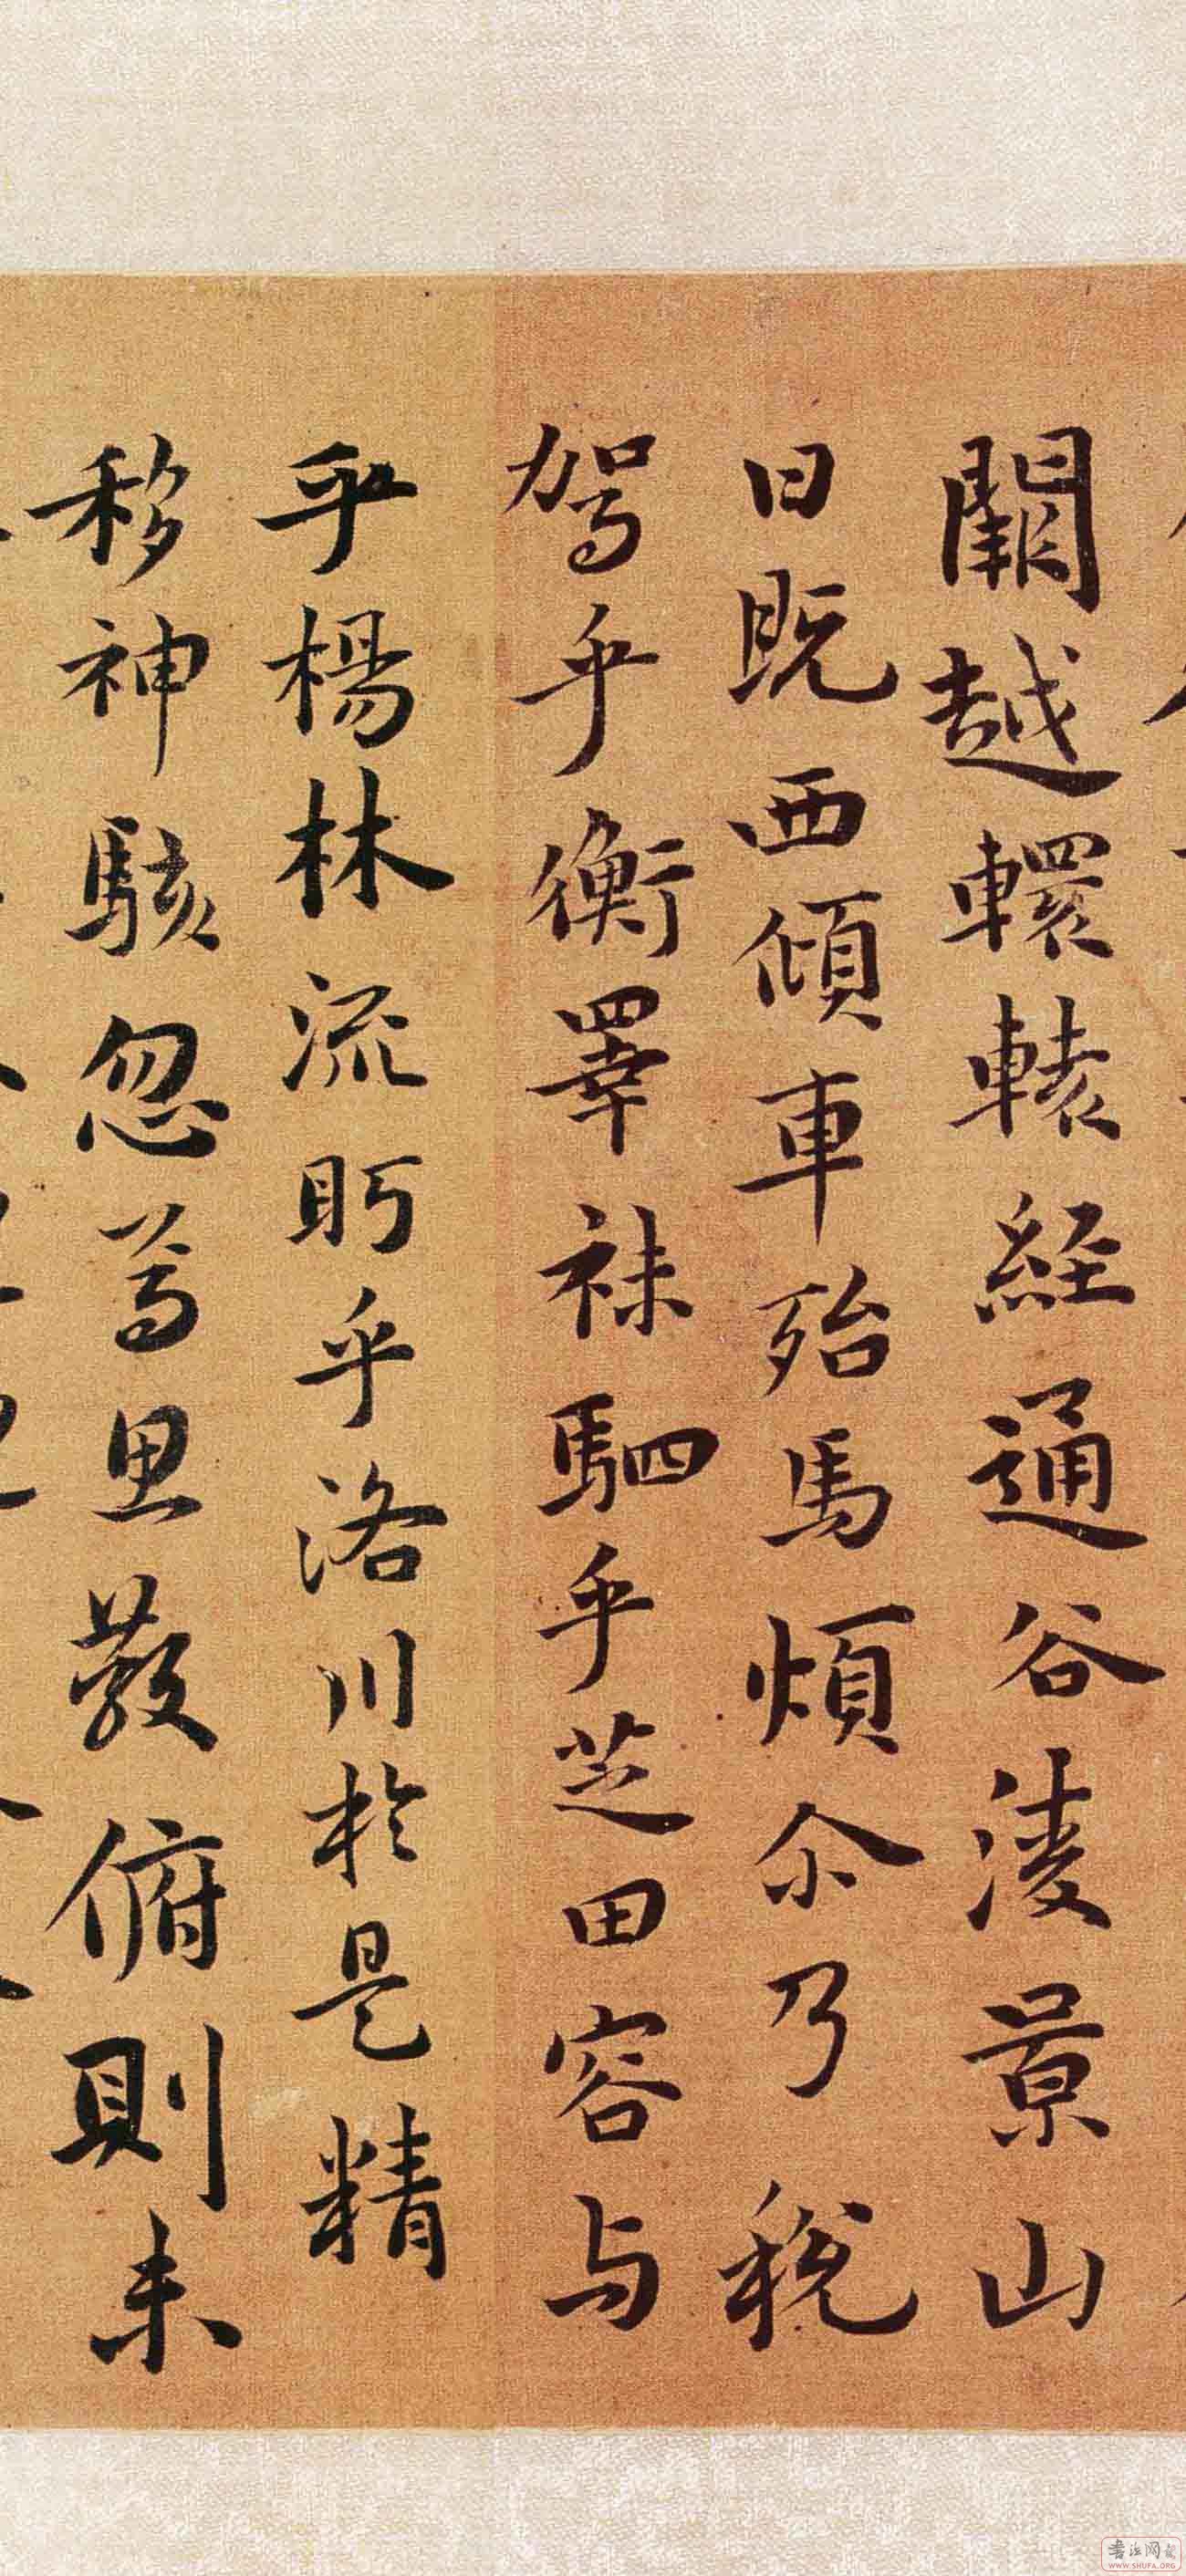 闕越轘轅經通谷陵景山
日既西傾車殆馬煩尒乃稅
駕乎蘅皋秣駟乎芝田容与
乎楊林流眄乎洛川於是精
移神駭忽焉思散俯則未
书法网
WWW.SHUFA.ORG